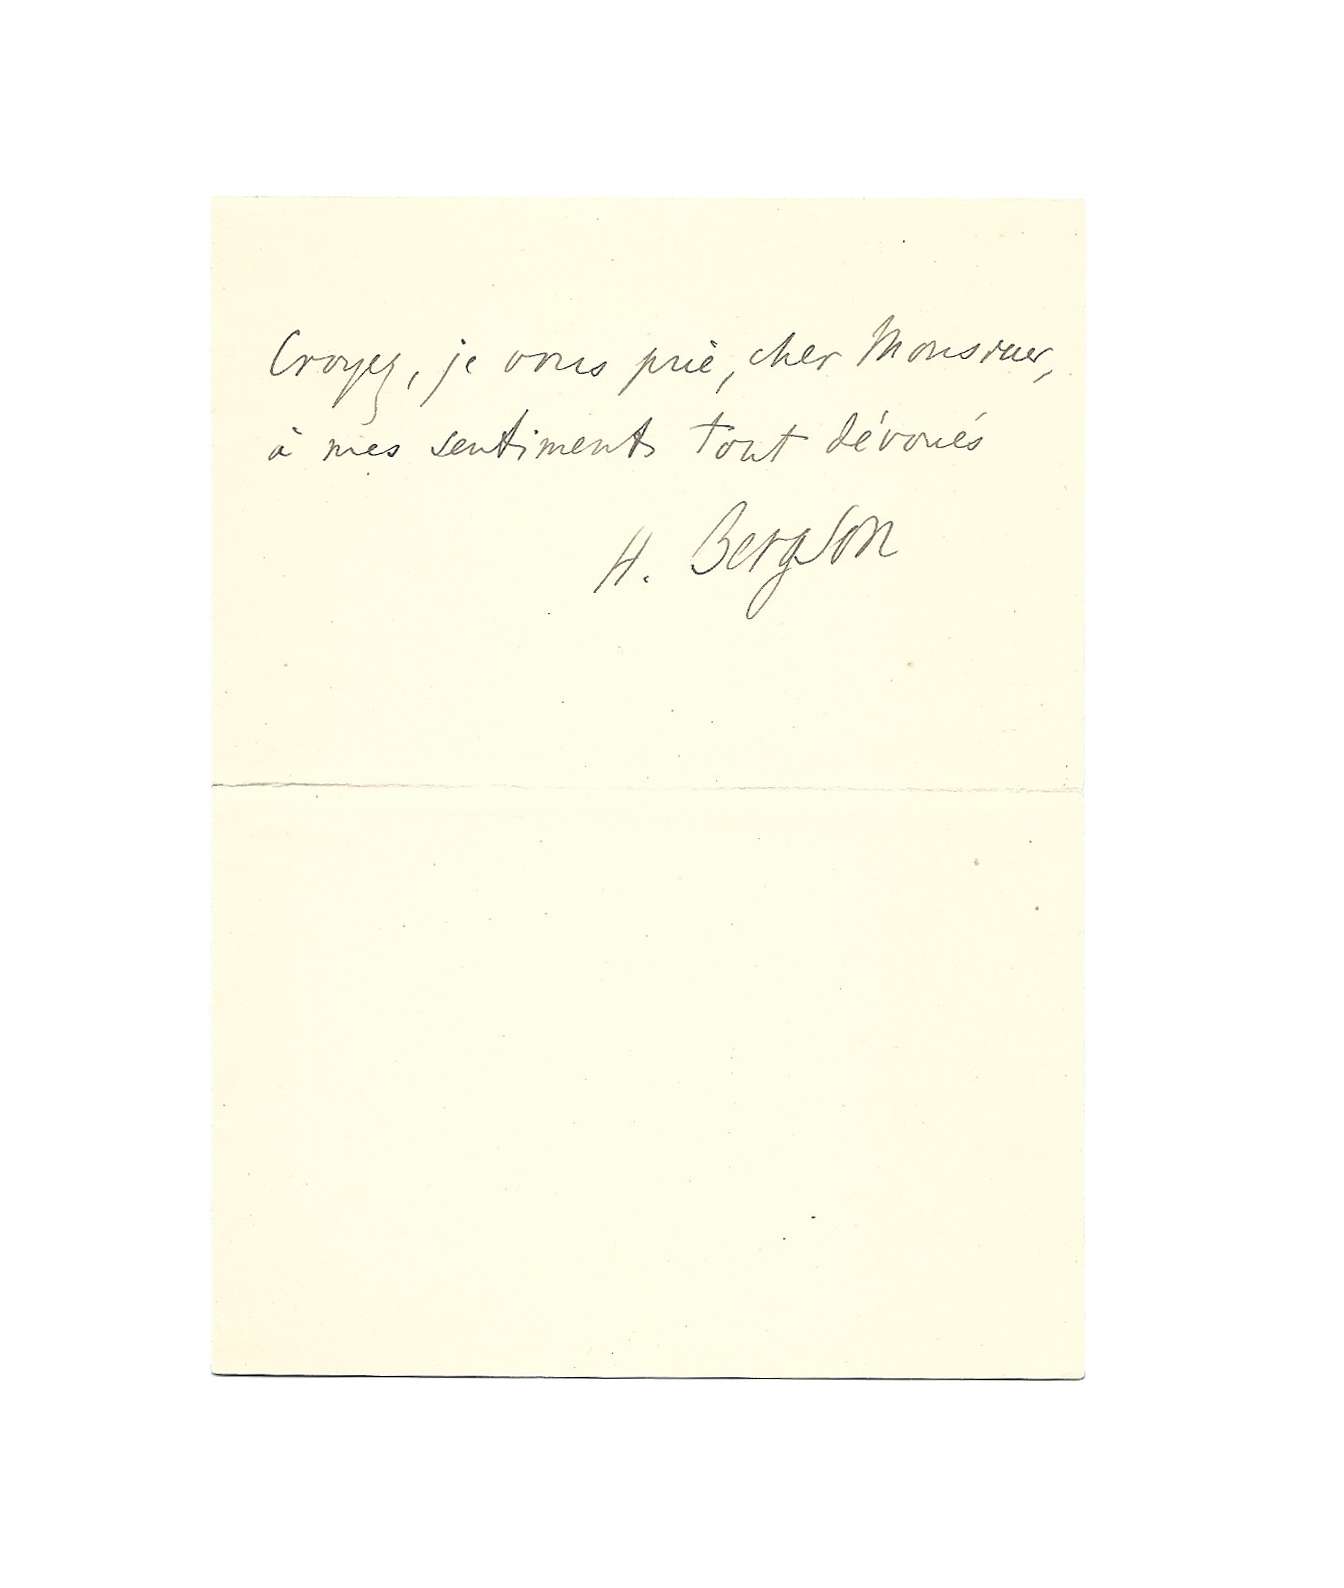 Croyez, je vous prie, cher Monsieur,
à mes sentiments tout dévoués
H. Bergson